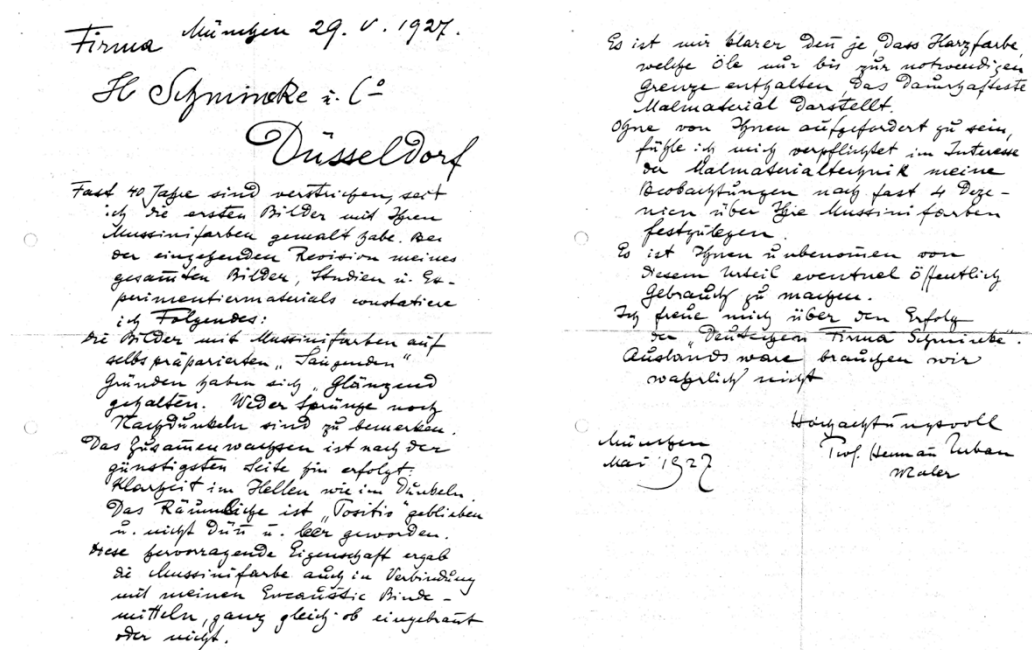 München 29. V. 1927.
Firma
H Schmincke u. Co
Düsseldorf
Fast 40 Jahre sind verstrichen, seit
ich die ersten Bilder mit Ihren
Mussinifarben gemalt habe. Bei
der eingehenden Revision meines
gesamten Bilder, Studien u. Ex-
perimentiermaterials constatiere
ich Folgendes:
Die Bilder mit Mussinifarben auf
selbs präparierten „Saugenden"
Gründen haben sich „Glänzend
gehalten. Weder Sprünge noch
Nachdunkeln sind zu bemerken.
Das Zusamenwachsen ist nach der
günstigsten Seite hin erfolgt:
Klarheit im Hellen wie im Dunkeln.
Das Räumliche ist „Positiv" geblieben
u. nicht Dünn u. leer geworden.
Diese hervorragende Eigenschaft ergab
die Mussinifarbe auch in Verbindung
mit meinen Encaustic Binde-
mitteln, ganz gleich ob eingebrannt
oder nicht.
Es ist mir klarer denn je, dass Harzfarbe,
welche Öle nur bis zur notwendigen
Grenze enthalten, das Dauerhafteste
Malmaterial darstellt.
Ohne von Ihnen aufgefordert zu sein,
fühle ich mich verpflichtet im Interesse
der Malmaterialtechnik meine
Beobachtungen nach fast 4 Deze-
nien über Ihre Mussinifarben
festzulegen.
Es ist Ihnen unbenomen von
diesem Urteil eventuel öffentlich
Gebrauch zu machen.
Ich freue mich über den Erfolg
der „Deutschen Firma Schmincke".
Auslandsware brauchen wir
wahrlich nicht
Hochachtungsvoll
München
Mai 1927
Prof. Herman Urban
Maler